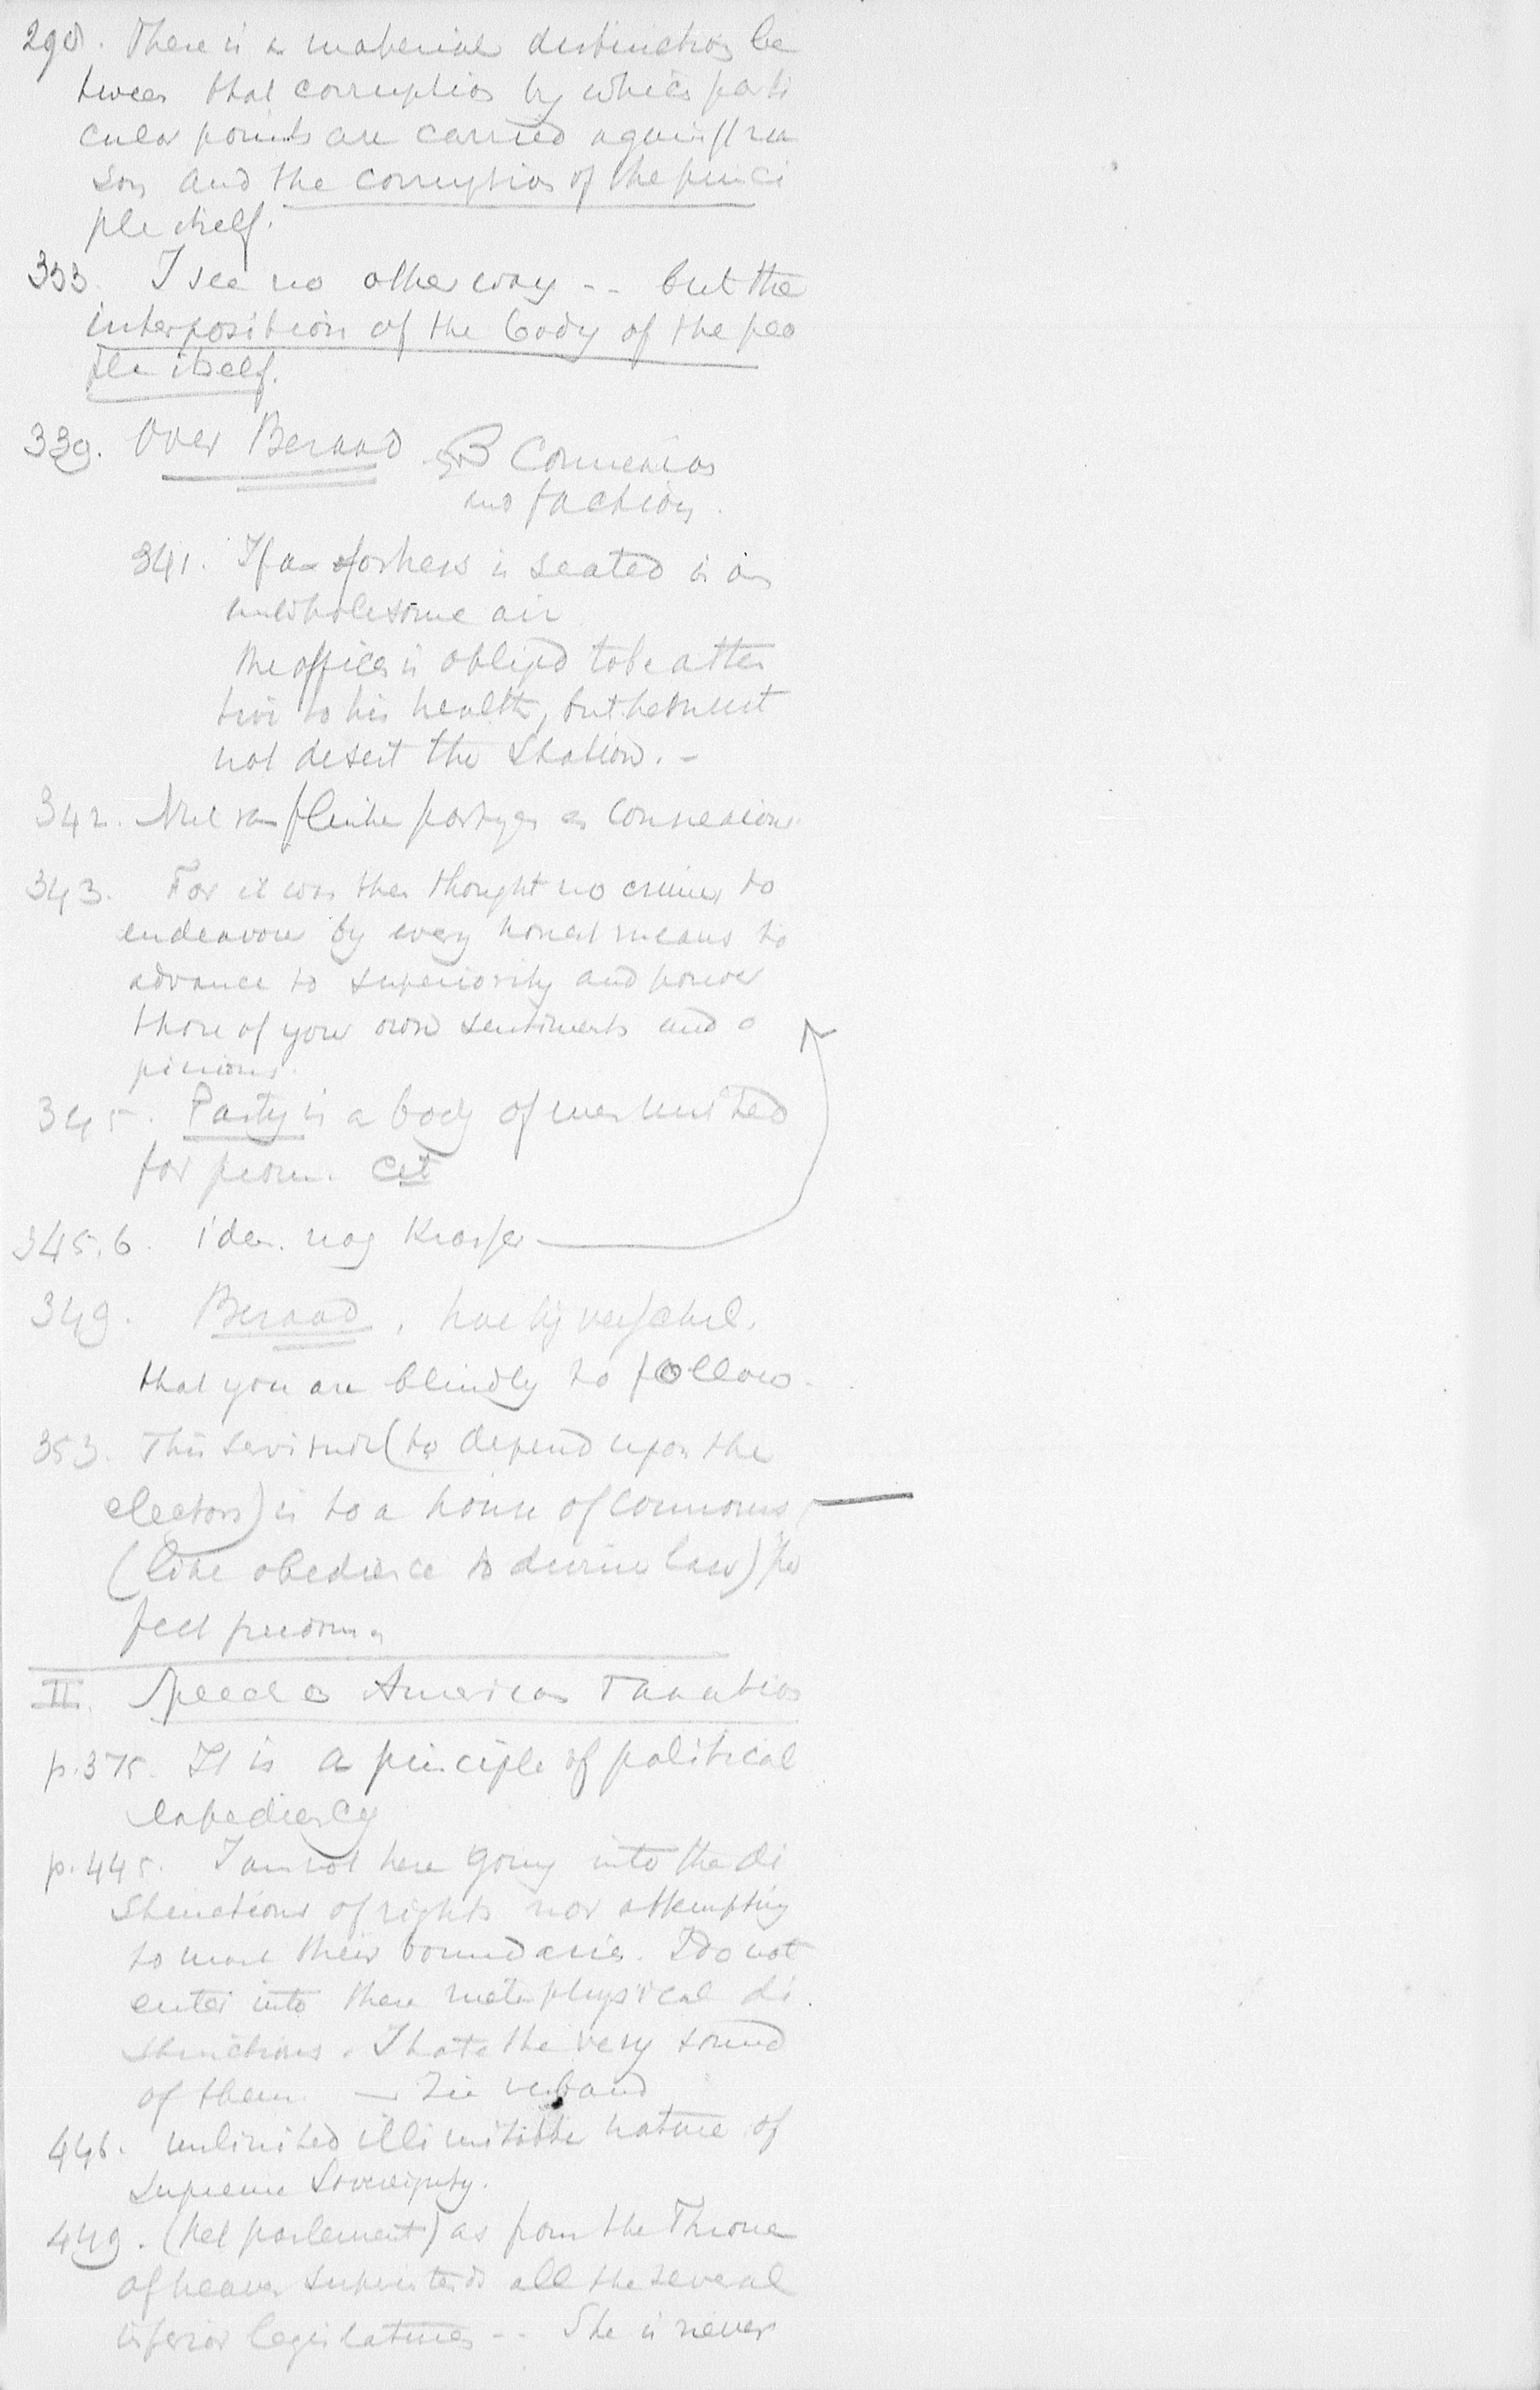 298. There is a material distinction be
tween that corruption by which parti
cular points are carried against rea
son and the corruption of the princi
ple itself.
333. I see no other way -- but the
interposition of the body of the peo
ple itself.
339. Over Beraad
Connexion
and faction.
341. If a fortress is seated in an
unwholesome air
the officer is obliged to be atten
tive to his health, but he must
not desert the station. -
342. Nut van flinke partyen en connexions
343. For it was then thought no crime, to
endeavour by every honest means to
advance to superiority and power
those of your own sentiments and o
pinions.
345. Party is a body of men united
for prom. Cit
345.6. idem. nog krasser
349. Beraad,
that you are blindly to follow.
353. This servitude (to depend upon the
electors) is to a house of Commons
(like obedience to divine law) "per
fect freedom"
II. Speech on American Taxation
p. 375. It is a principle of political
expediency
p. 445. I am not here going into the di
stinctions of rights nor attempting
to mark their boundaries. I do not
enter into these metaphysical di
stinctions. I hate the very sound
of them. — Zie verband
446. unlimited illimitable nature of
supreme Sovereignty.
449. (het parlement) as from the Throne
of heaven superintends all the several
inferior legislatures -- She is never